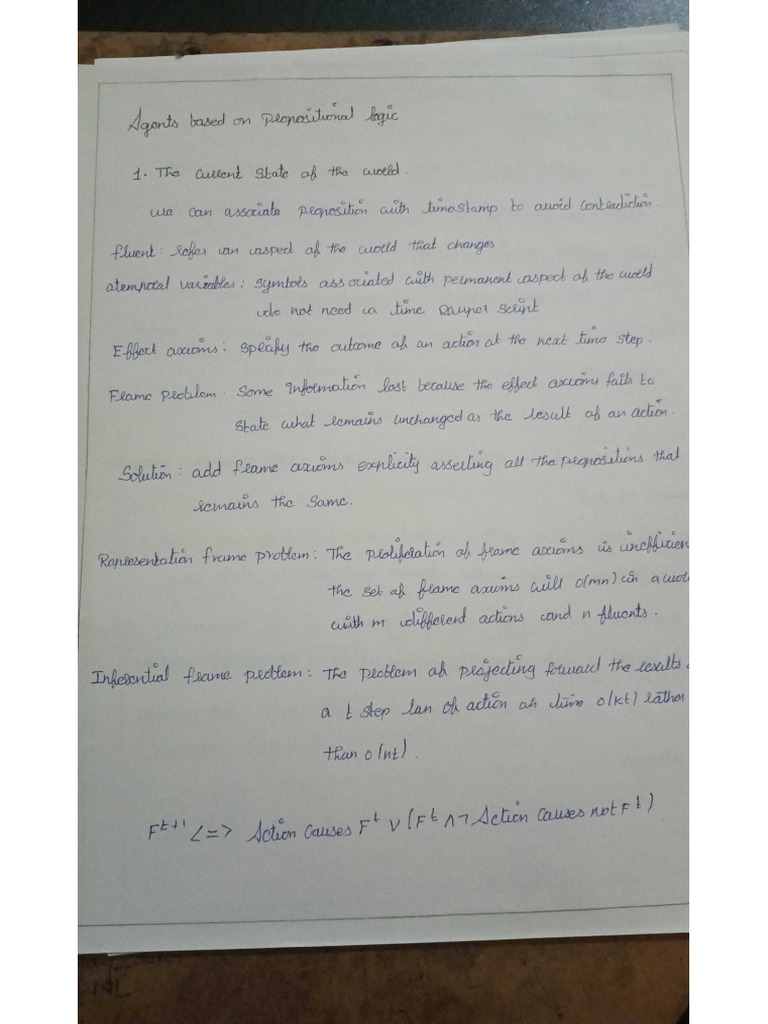 Agents based on Propositional logic
1. The current state of the world.
we can associate proposition with timestamp to avoid contradiction.
fluent: refer an aspect of the world that changes.
atemporal variables: symbols associated with permanent aspect of the world
do not need a time super script
Effect axioms: specify the outcome of an action at the next time step.
Frame Problem: Some Information lost because the effect axioms fails to
state what remains unchanged as the result of an action.
Solution: add frame axioms explicity asserting all the propositions that
remains the same.
Representation frame problem: The proliferation of frame axioms is inefficien
the set of frame axioms will O(mn) in a
with m different actions and n fluents.
Inferential frame problem: The problem of projecting forward the results
a t step lan of action in time O(kt) rather
than O(nt).
F^t+1 <=> Action Causes F^t ∨ (F^t ∧ ¬ Action Causes not F^t)